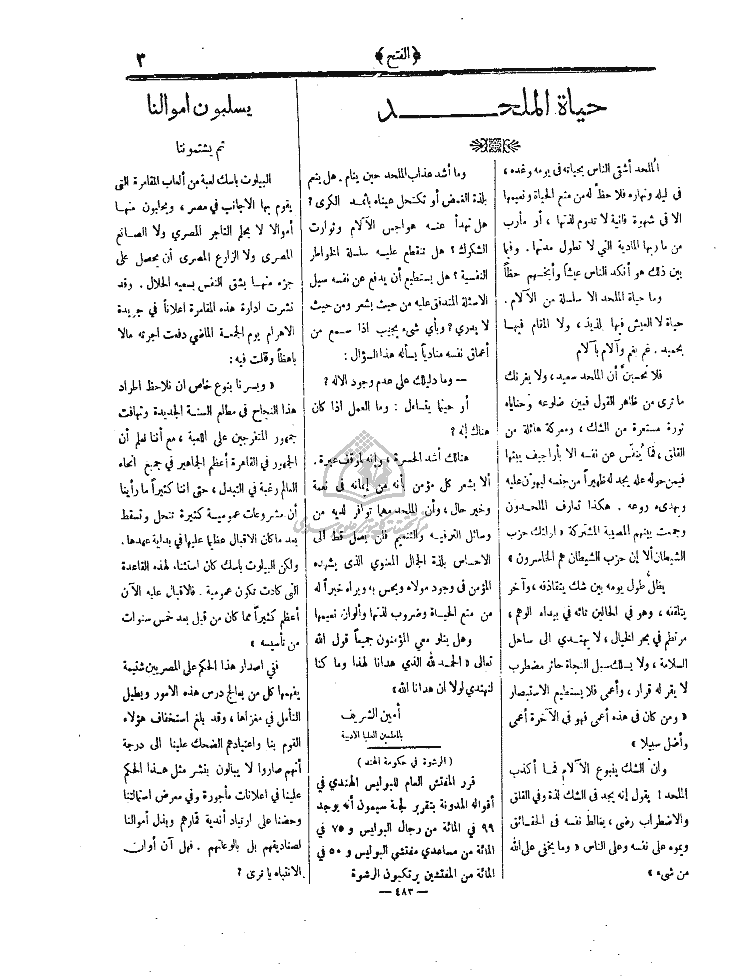 ﴿الفتح﴾
٣
حياة الملحـــــد
الملحد أشقى الناس بحياته في يومه وغده ،
في ليله ونهاره فلا حظ له من متع الحياة ونعيمها
الا في شهوة فانية لا تدوم لذتها ، أو مأرب
من مآربها المادية التي لا تطول مدتها . وفيها
بين ذلك هو أنكد الناس عيشاً وأبخسهم حظاً
وما حياة الملحد الا سلسلة من الآلام .
حياة لا العيش فيها بلذيذ ، ولا المقام فيهـا
بحميد . غم بغم وآلام بآلام
فلا تحسبن أن الملحد سعيد ، ولا يغرنك
ما ترى من ظاهر القول فبين ضلوعه وحناياه
ثورة مستعرة من الشك ، ومعركة هائلة من
القلق ، فما يُنفّس عن نفسه الا بأراجيف يبثها
فيمن حوله عله يجد له ظهيراً من جنسه ليهون عليه
ويهدىء روعه . هكذا تعارف الملحدون
وجمعت بينهم المصيبة المشتركة « اولئك حزب
الشيطان ألا إن حزب الشيطان هم الخاسرون »
يظل طول يومه بين شك يتقاذفه ، وآخر
يتلقفه ، وهو في الحالين تائه في بيداء الوهم ،
مرتطم في بحر الخيال ، لا يهتدي الى ساحل
السلامة ، ولا يسلك سبل النجاة حائر مضطرب
لا يقر له قرار ، وأعمى فلا يستطيع الاستبصار
« ومن كان في هذه أعمى فهو في الآخرة أعمى
وأضل سبيلا »
وان الشك ينبوع الآلام فمـا أكذب
الملحد ! يقول إنه يجد في الشك لذة وفي القلق
والاضطراب رضى ، يغالط نفسه في الحقـائق
ويموه على نفسه وعلى الناس « وما يخفى على الله
من شيء »
وما أشد عذاب الملحد حين ينام . هل ينعم
بلذة الغمض أو تكتحل عيناه باثمد الكرى ؟
هل تهدأ عنـه هواجس الآلام وثوارت
الشكوك ؟ هل تنقطع عليـه سلسلة الخواطر
النفسية ؟ هل يستطيع أن يدفع عن نفسه سيل
الاسئلة المتدفق عليه من حيث يشعر ومن حيث
لا يدري ؟ وبأي شيء يجيب اذا سمع من
أعماق نفسه منادياً يسأله هذا السؤال :
— وما دليلك على عدم وجود الاله ؟
أو حينما يتساءل : وما العمل اذا كان
هناك إله ؟
هنالك أشد الحسرة ، وانه لموقف عبرة .
ألا يشعر كل مؤمن أنه من إيمانه في نعمة
وخير حال ، وأن الملحد مهما توافر لديه من
وسائل الترفيـه والتنعيم فلن يصل قط الى
الاحساس بلذة الجمال المعنوي الذي يشهده
المؤمن في وجود مولاه ويحس به ويراه خيراً له
من متع الحيـاة وضروب لذتها وألوان نعيمها
وهل يتلو معي المؤمنون جميعاً قول الله
تعالى « الحمـد لله الذي هدانا لهذا وما كنا
لنهتدي لولا ان هدانا الله »
أمين الشريف
بالمعلمين العليا الادبية
( الرشوة في حكومة الهند )
قرر المفتش العام للبوليس الهندي في
أقواله المدونة بتقرير لجنة سيمون أنه يوجد
٩٩ في المائة من رجال البوليس و ٧٥ في
المائة من مساعدي مفتشي البوليس و ٥٠ في
المائة من المفتشين يرتكبون الرشوة
يسلبون اموالنا
ثم يشتموننا
البيلوت باسك لعبة من ألعاب المقامرة التي
يقوم بها الاجانب في مصر ، ويجلبون منهـا
أموالا لا يحلم التاجر المصري ولا الصـانع
المصرى ولا الزارع المصرى أن يحصل على
جزء منهـا بشق النفس بسعيه الحلال . وقد
نشرت ادارة هذه المقامرة اعلاناً في جريدة
الاهرام يوم الجمعة الماضي دفعت اجرته مالا
باهظاً وقلت فيه :
« ويسرنا بنوع خاص ان نلاحظ اطراد
هذا النجاح في مطلع السنة الجديدة وتهافت
جمهور المتفرجين على اللعبة ، مع أننا نعلم أن
الجمهور في القاهرة أعظم الجماهير في جميع انحاء
العالم رغبة في التبدل ، حتى اننا كثيراً ما رأينا
أن مشروعات عمومية كثيرة تنحل وتسقط
بعد ما كان الاقبال عظيا عليها في بداية عهدها .
ولكن البيلوت باسك كان استثناء لهذه القاعدة
التى كادت تكون عمومية . فالاقبال عليه الآن
أعظم كثيراً مما كان من قبل بعد خمس سنوات
من تأسيسه »
في اصدار هذا الحكم على المصريين شتيمة
يفهمها كل من يعالج درس هذه الامور ويطيل
التأمل في مغزاها ، وقد بلغ استخفاف هؤلاء
القوم بنا واعتيادهم الضحك علينا الى درجة
أنهم صاروا لا يبالون بنشر مثل هـذا الحكم
علينا في اعلانات مأجورة وفي معرض استمالتنا
وحضنا على ارتياد أندية قمارهم وبذل أموالنا
لصناديقهم بل بالوعاتهم . فهل آن أوان
الانتباه يا ترى ؟
— ٤٨٣ —